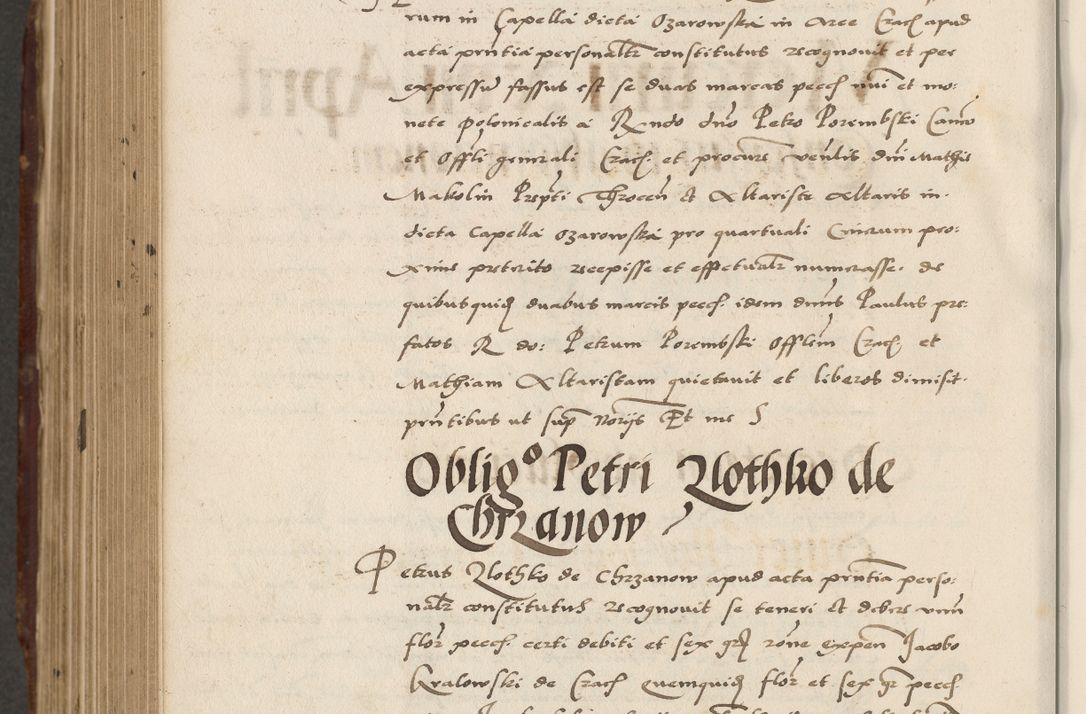 rum in Capella dicta Ozarowska in Arce Crac̃ apud
acta pn̄tia personalr̄ constitutus recognouit et per
expressū fassus est se duas marcas pecc̃ nūi et mo:
nete Polonicalis a Rndo dn̄o Petro Porembski Canco
et Offl̄i generali Crac̃ et procure ven̄lis dn̄i Mathie
Makolin Prep̄ti Throcen̄ et Altariste Altaris in
dicta Capella Ozarowska pro quartuali Cinerum pro:
xime preterito recepisse et effectualr̄ numerasse. de
quibus quidꝫ duabus marcis pecc̃ idem dn̄us Paulus pre:
fatos R do: Petrum Porembski Offlem Crac̃ et
Mathiam Altaristam quietauit et liberos dimisit.
pn̄tibus ut sup̄ Nor̄ijs Et me S
Obligᵒ Petri Zlothko de
Chrzanow
Petrus Zlothko de Chrzanow apud acta pn̄tia perso:
nalr̄ constitutus recognouit se teneri et debere vnū
flor̄ pecc̃ certi debiti et sex gr̄ rōne expen̄ Jacobo
Kralowski de Crac̃ quemquidꝫ flor̄ et sex gr̄ pecc̃